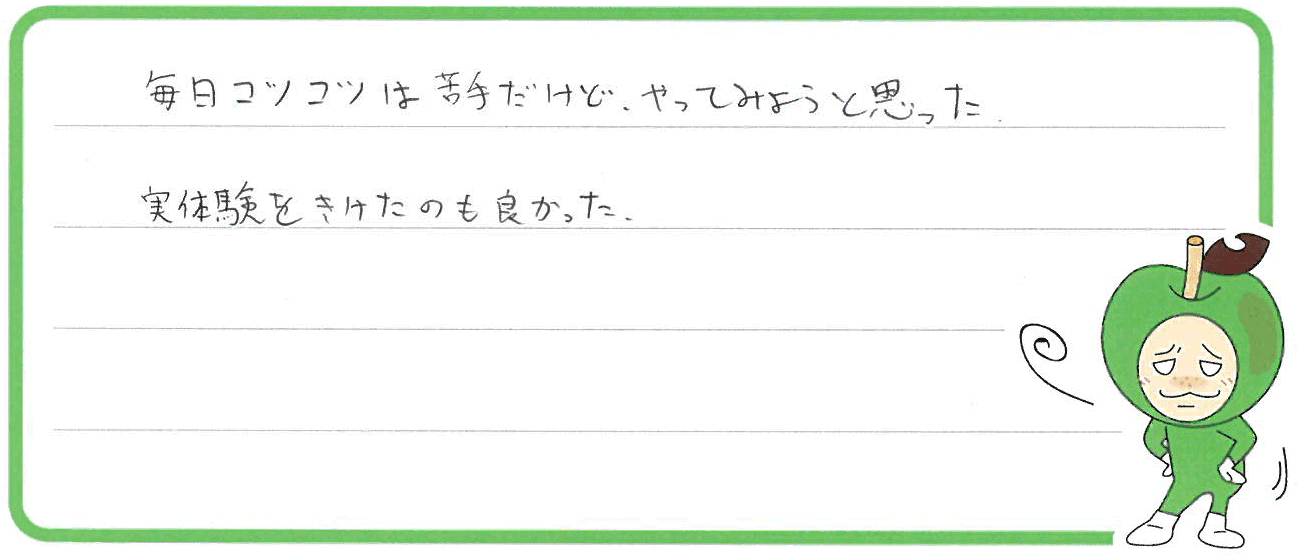 毎日コツコツは苦手だけど、やってみようと思った.
実体験をきけたのも良かった.